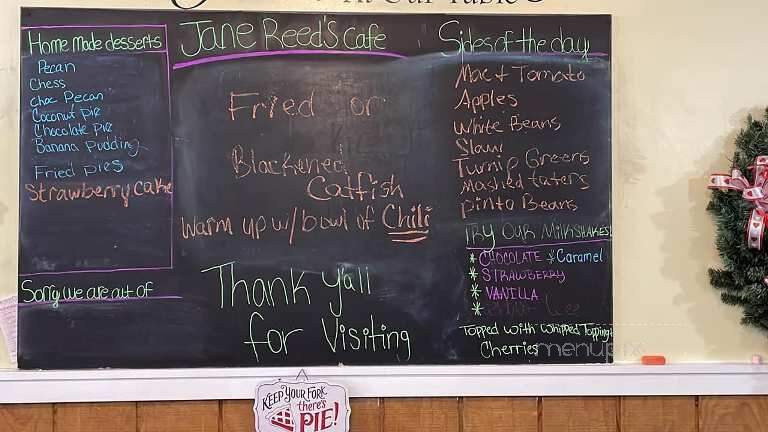 Home Made desserts
Pecan
Chess
choc Pecan
Coconut pie
Chocolate pie
Banana pudding
Fried pies
Strawberry cake
Sorry we are out of
Jane Reed's cafe
Fried or
Blackened
Catfish
Warm up w/ bowl of Chili
Thank y'all
for Visiting
Sides of the day
Mac + Tomato
Apples
White Beans
Slaw
Turnip Greens
Mashed taters
Pinto Beans
Try Our MilkSHAKES!
* CHOCOLATE * Caramel
* STRAWBERRY
* VANILLA
*
Topped with Whipped Topping +
Cherries
menupix
KEEP YOUR FORK
there's
PIE!